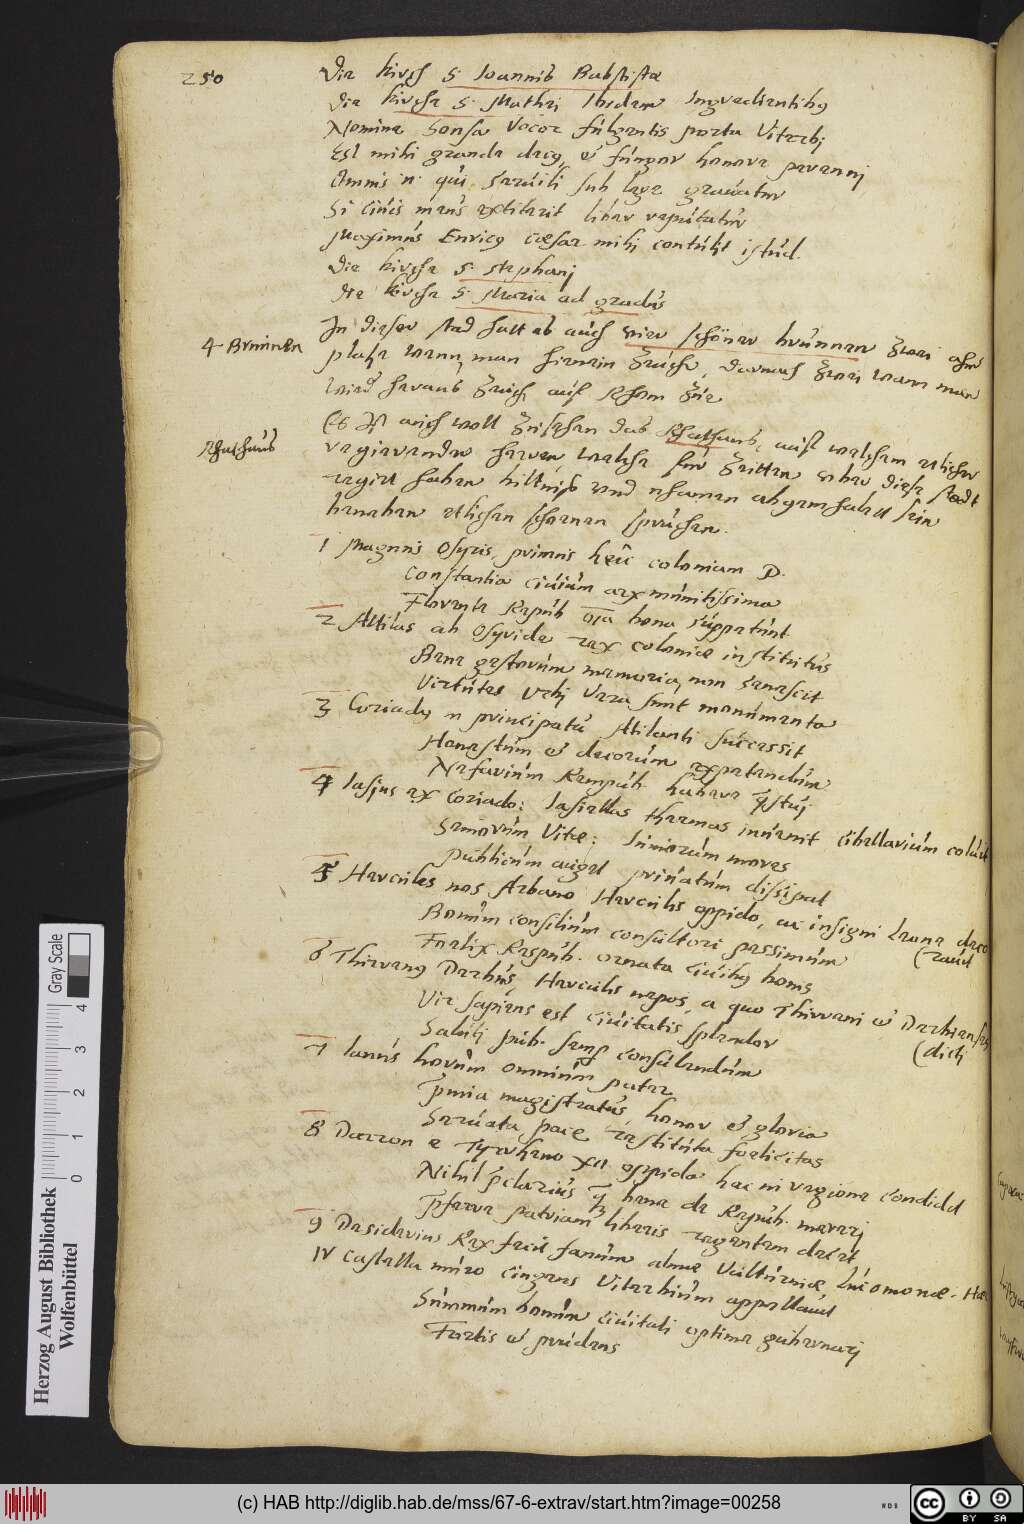 250
Die kirch S. Ioannis Babtistæ
Die kirche S. Mathei Ibidem Ingredientibus
Nomine Sonsa Vocor fulgentis porta Viterbij
Est mihi grande decus, et fungor honore perennj
Omnis n. qui servili sub lege gravatur
Si civis meus extiterit liber reputatur
Maximus Enricus cæsar mihj contulit istud.
Die kirche S. Stephanj
Die kirche S. Maria ad gradus
4 Brunnen
In dieser stad hatt es auch vier schöner brunnen zwei ohn
platze wenn man hinein zeucht, darnach zwei wann man
wird heraus zeucht auff Rhom zu.
Rhathaus
Es ist auch woll zu sehen das Rhathaus, auff welchem etlicher
regierenden herren, welche fur zeitten uber diese stedt
regirt haben biltnus und nhamen abgemhalett sein
beneben etlichen schonen spruchen.
1 Magnus Osyris, primus huic coloniam D.
Constantia civium arx munitissima
Florente Repub. oīa bona suppetunt
2 Attilus ab Osyride rex coloniæ institutus
Bene gestorum memoria, non senescit
Virtutes Urbj vera sunt monumenta
3 Coriadus in principatu Atilanti successit
Honestum et decorum expetendum
Nefarium Rempub. habere q̄stuj
4 Iasjus ex Coriado: Iasiellas thermas invenit Cibellarium coluit
Seniorum Vitæ: Iuniorum mores
Publicum auget privatum dissipat
5 Hercules nos Arbano Herculis oppido, ac insigni Leone deco
(ravit
Bonum consilium consultori pessimum
Foelix Respub. ornata civibus bonis
6 Thirrenus Derbus, Herculis nepos, a quo Thirreni et Derbienses
(dictj
Vir sapiens est civitatis splendor
Salutj pub. semp consulendum
7 Ianus horum omnium pater
Pmia magistratus honor et gloria
Servata pace restituta foelicitas
8 Darcon e Tyrrheno XII oppida hac in regione condidit
Nihil p̄clarius q̄ bene de Repub. mererj
P̄ferre patriam liberis regentem decet
9 Desiderius Rex fecit fanum almæ Vulturnæ, Lucomonæ. Hæc
IV castella muro cingens Viterbium appellavit
Summum bonum civitati optime gubernarj
Fortis et prudens
Herzog August Bibliothek
Wolfenbüttel
Gray Scale
0 1 2 3 4
(c) HAB http://diglib.hab.de/mss/67-6-extrav/start.htm?image=00258
WDB
cc BY SA